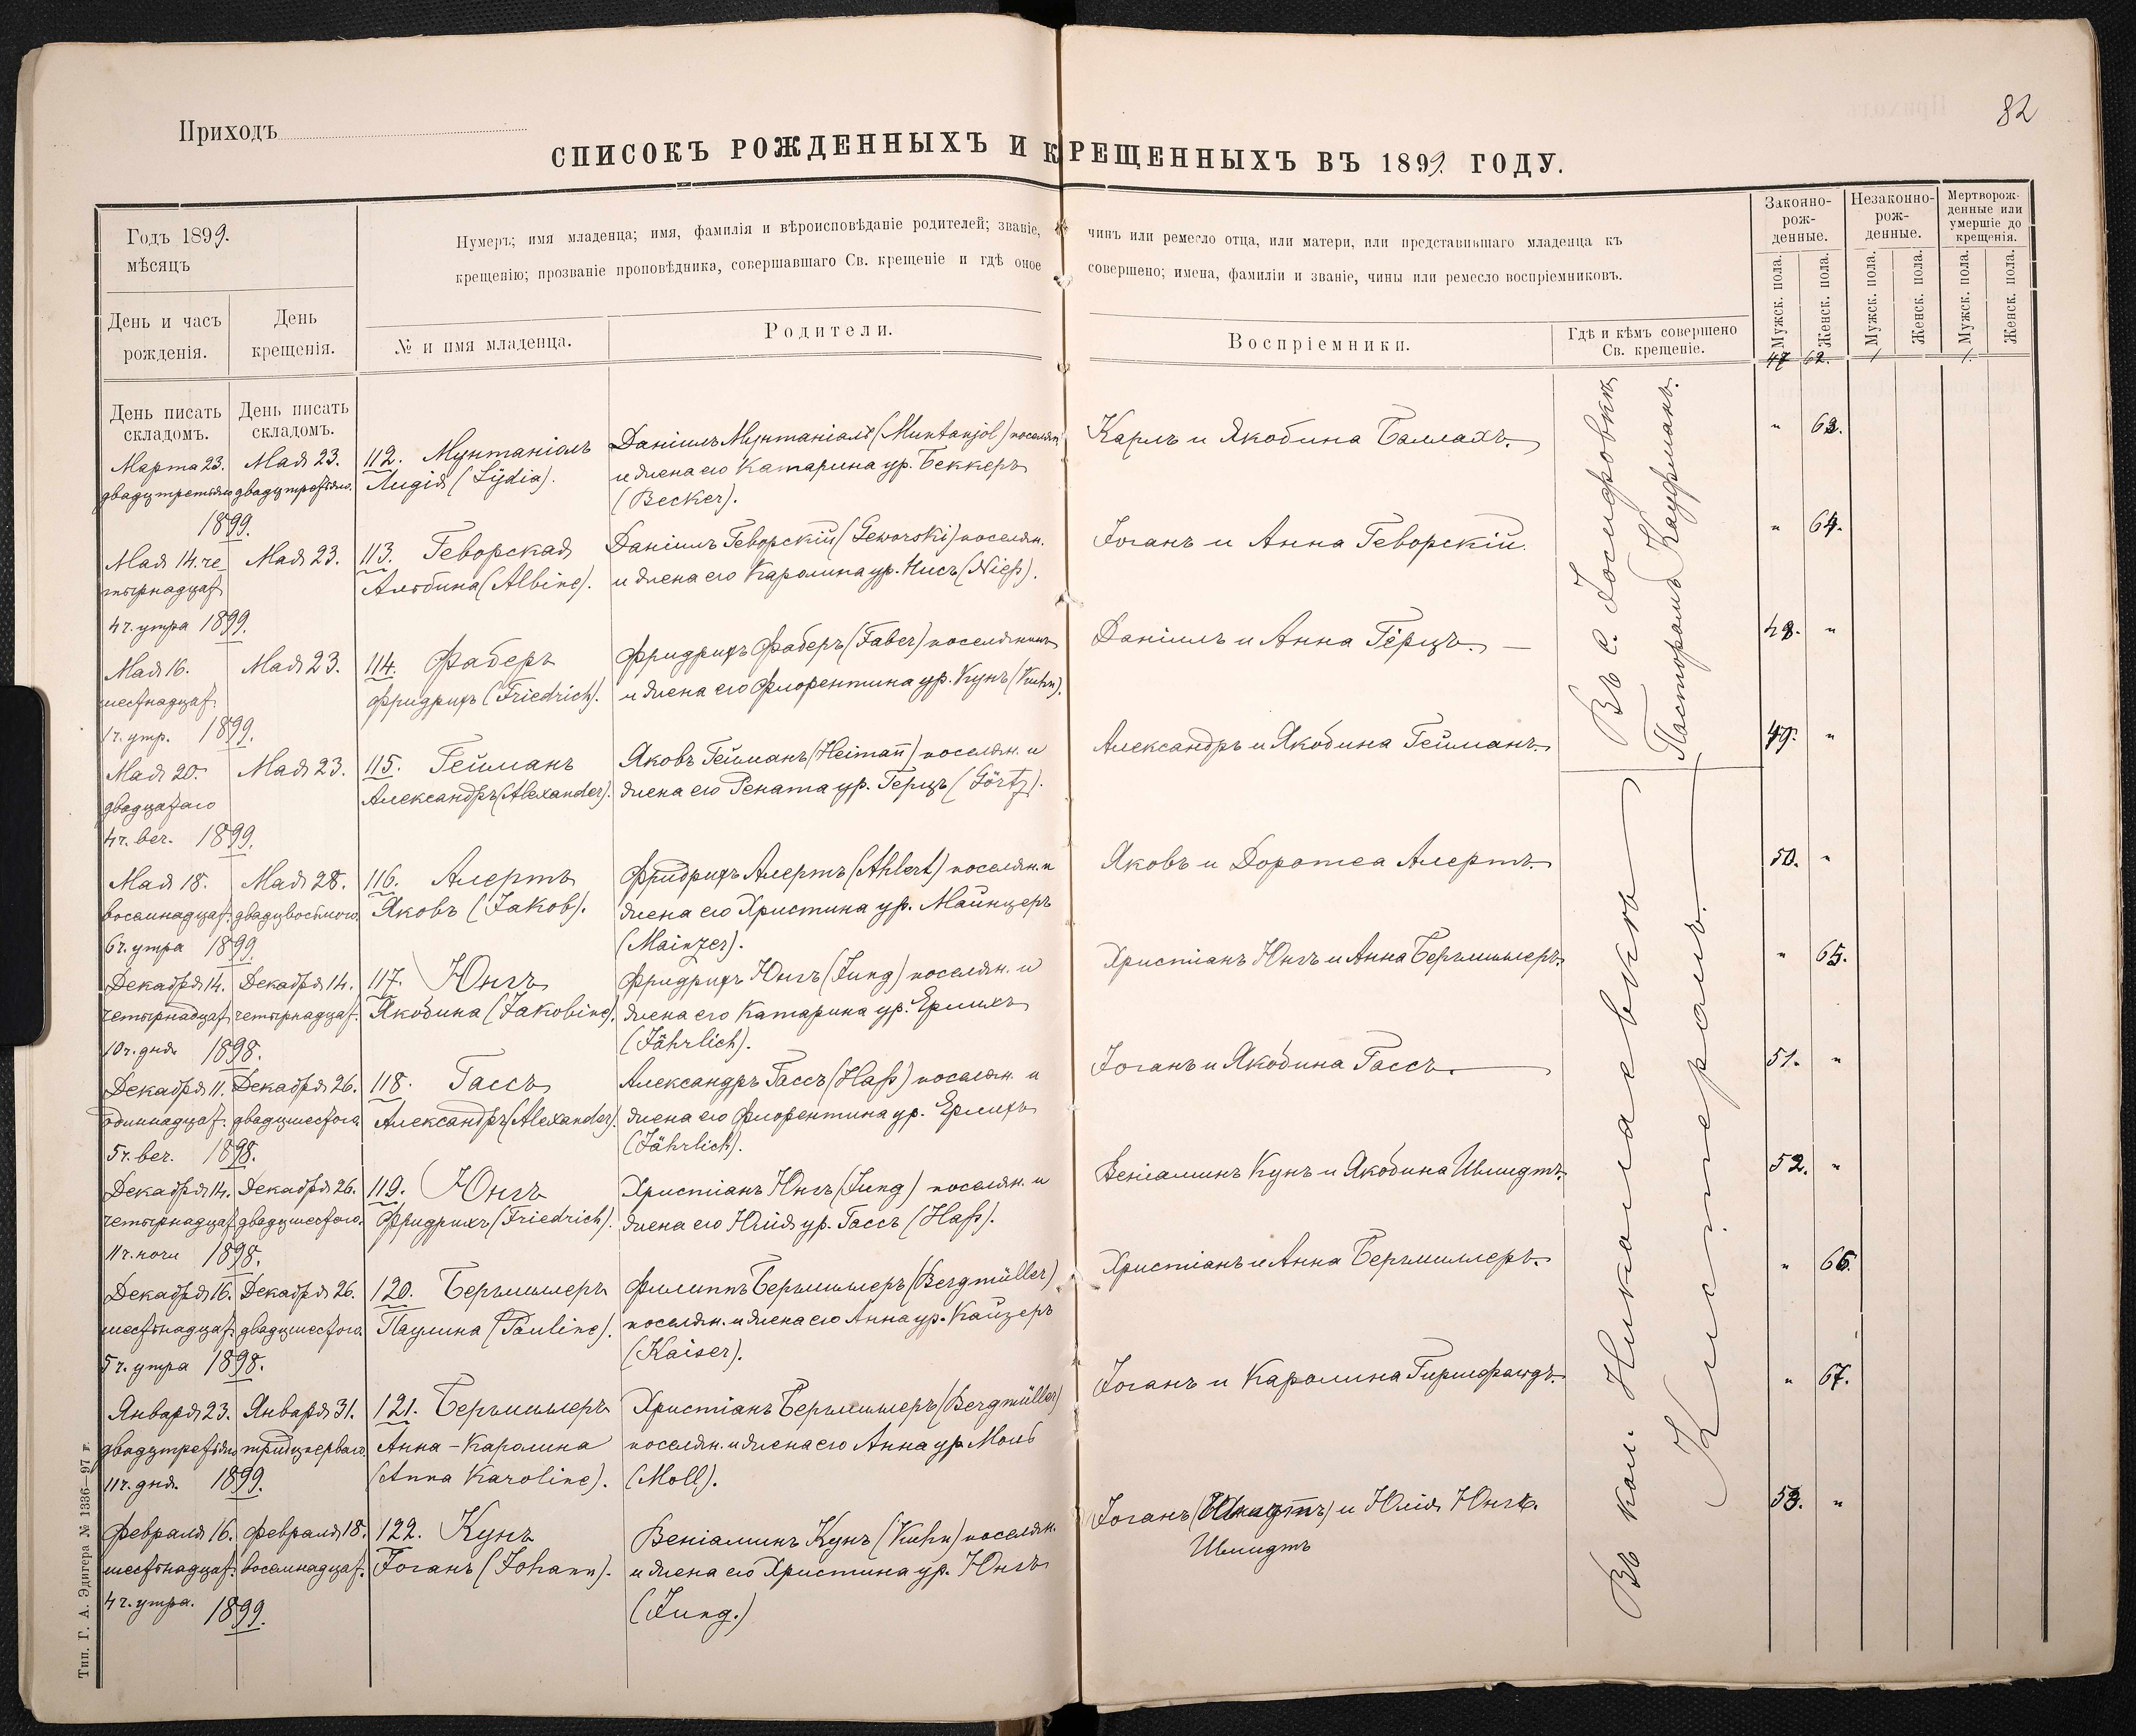 82
Приходъ
СПИСОКЪ РОЖДЕННЫХЪ И КРЕЩЕННЫХЪ ВЪ 1899. ГОДУ.
Годъ 1899.
мѣсяцъ
День и часъ
рожденія.
День
крещенія.
Нумеръ; имя младенца; имя, фамилія и вѣроисповѣданіе родителей; званіе, чинъ или ремесло отца, или матери, или представившаго младенца къ
крещенію; прозваніе проповѣдника, совершавшаго Св. крещеніе и гдѣ оное совершено; имена, фамиліи и званіе, чины или ремесло воспріемниковъ.
№ и имя младенца.
Родители.
Воспріемники.
Гдѣ и кѣмъ совершено
Св. крещеніе.
Законно-
рож-
денные.
Незаконно-
рож-
денные.
Мертворож-
денные или
умершіе до
крещенія.
Мужск. пола.
Женск. пола.
Мужск. пола.
Женск. пола.
Мужск. пола.
Женск. пола.
47 62. 1 1.
День писать
складомъ.
День писать
складомъ.
Марта 23.
двадцтретьяго
1899.
Мая 23.
двадцтретьяго.
112. Мунтаніолъ
Лидія (Lydia).
Даніилъ Мунтаніолъ (Muntanjol) поселян.
и жена его Катарина ур. Беккеръ
(Becker).
Карлъ и Якобина Баллахъ.
" 63.
Мая 14. че-
тырнадцат
4 ч. утра 1899.
Мая 23.
113. Геворская
Альбина (Albine).
Даніилъ Геворскій (Geworski) поселян.
и жена его Каролина ур. Нисъ (Nieß).
Іоганъ и Анна Геворскій.
" 64.
Мая 16.
шестнадцат.
1 ч. утр. 1899.
Мая 23.
114. Фаберъ
Фридрихъ (Friedrich).
Фридрихъ Фаберъ (Faber) поселянинъ
и жена его Флорентина ур. Кунъ (Kuhn).
Даніилъ и Анна Гёрцъ.
48. "
Мая 20.
двадцатаго
4 ч. веч. 1899.
Мая 23.
115. Гейманъ
Александръ (Alexander).
Яковъ Гейманъ (Heimañ) поселян. и
жена его Рената ур. Герцъ (Görtz).
Александръ и Якобина Гейманъ.
49. "
Въ с. Іосифовкѣ
Пасторомъ Кауфманъ.
Мая 18.
восемнадцат.
6 ч. утра 1899.
Мая 28.
двадцвосьмого.
116. Алертъ
Яковъ (Jakob).
Фридрихъ Алертъ (Ahlert) поселян. и
жена его Христина ур. Майнцеръ
(Mainzer).
Яковъ и Доротеа Алертъ.
50. "
Декабря 14.
четырнадцат
10 ч. дня 1898.
Декабря 14.
четырнадцат.
117. Юнгъ
Якобина (Jakobine).
Фридрихъ Юнгъ (Jung) поселян. и
жена его Катарина ур. Ерлихъ
(Jährlich).
Христіанъ Юнгъ и Анна Бергмиллеръ.
" 65.
Декабря 11.
одиннадцат.
5 ч. веч. 1898.
Декабря 26.
двадцшестого.
118. Гассъ
Александръ (Alexander).
Александръ Гассъ (Haß) поселян. и
жена его Флорентина ур. Ерлихъ
(Jährlich).
Іоганъ и Якобина Гассъ.
51. "
Декабря 14.
четырнадцат.
11 ч. ночи 1898.
Декабря 26.
двадцшестого.
119. Юнгъ
Фридрихъ (Friedrich).
Христіанъ Юнгъ (Jung) поселян. и
жена его Юлія ур. Гассъ (Haß).
Веніаминъ Кунъ и Якобина Шмидтъ.
52. "
Декабря 16.
шестнадцат.
5 ч. утра 1898.
Декабря 26.
двадцшестого.
120. Бергмиллеръ
Паулина (Pauline).
Филиппъ Бергмиллеръ (Bergmüller)
поселян. и жена его Анна ур. Кайзеръ
(Kaiser).
Христіанъ и Анна Бергмиллеръ.
" 66.
Января 23.
двадцтретьяго
11 ч. дня. 1899.
Января 31.
тридцперваго
121. Бергмиллеръ
Анна-Каролина
(Anna Karoline).
Христіанъ Бергмиллеръ (Bergmüller)
поселян. и жена его Анна ур. Моль
(Moll).
Іоганъ и Каролина
" 67.
Февраля 16.
шестнадцат.
4 ч. утра. 1899.
Февраля 18.
восемнадцат.
122. Кунъ
Іоганъ (Johann).
Веніаминъ Кунъ (Kuhn) поселян.
и жена его Христина ур. Юнгъ
(Jung.)
Іоганъ и Юлія Юнгъ.
Шмидтъ
53. "
Въ кол. Николаевкѣ
Кистеромъ.
Тип. Г. А. Эдигера № 1336—97 г.